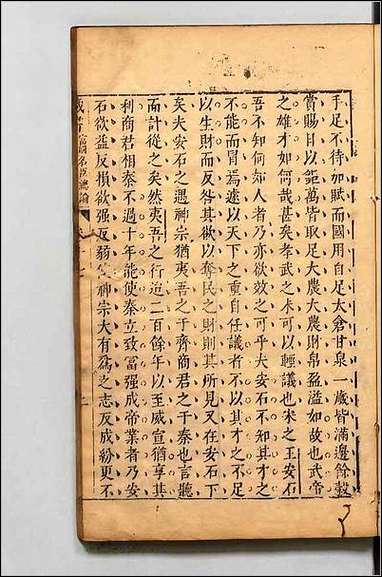 手足不待加賦而國用自足太倉甘泉一歲皆滿邊餘穀
賞賜目以鉅萬皆取足大農大農財帛盈溢如故也武帝
之雄才如何哉甚矣孝武之未可以輕議也宋之王安石
吾不知何如人者乃亦欲效之可乎夫安石不知其才之
不能而冒焉遽以天下之重自任議者不以其才之不足
以生財而反咎其欲以奪民之財則其所見又在安石下
矣夫安石之遇神宗猶夷吾之于齊商君之于秦也言聽
而計從之矣然夷吾之行近二百餘年以至威宣猶享其
利商君相秦不過十年能使秦立致富强成帝業者乃安
石欲益反損欲强反弱使神宗大有爲之志反成紛更不
名臣總論